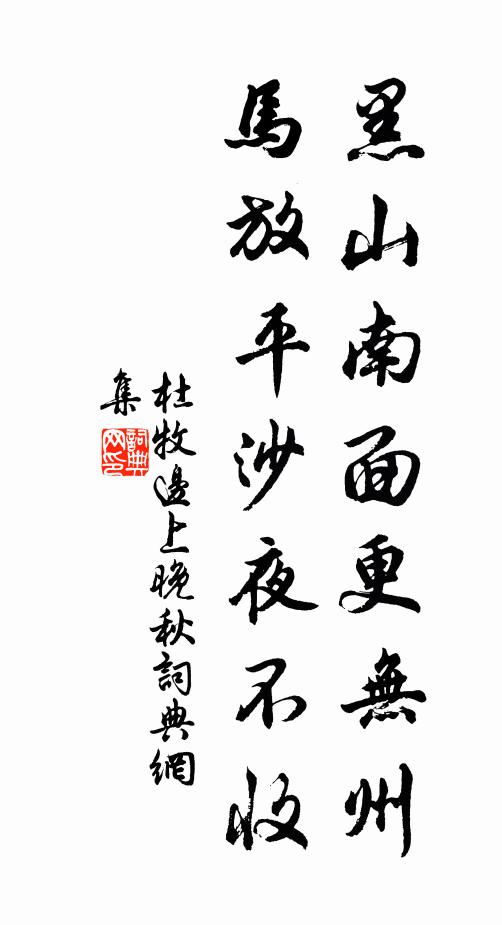 黑山南面更無州
馬放平沙夜不收
杜牧邊上晚秋詞典網
集
詞典網印